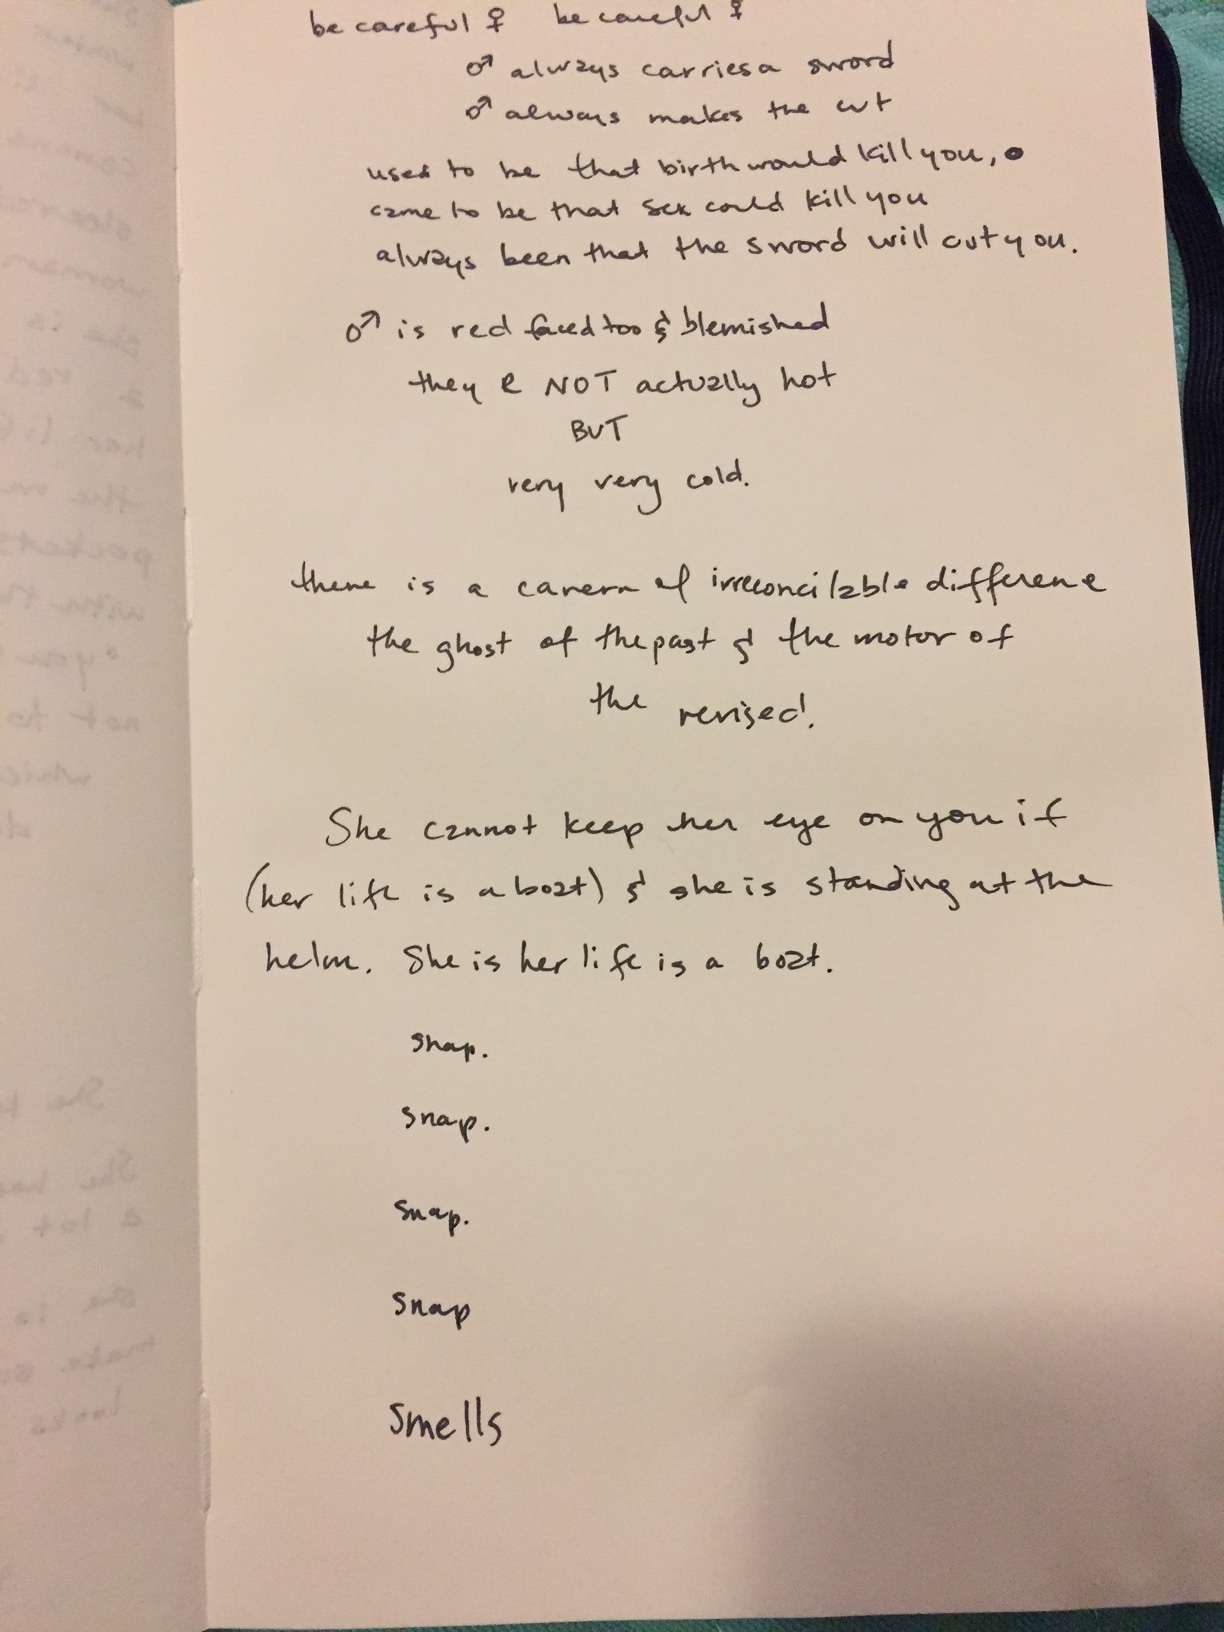 be careful ♀ be careful ♀
♂ always carries a sword
♂ always makes the cut
used to be that birth would kill you,
came to be that sex could kill you
always been that the sword will cut you.
♂ is red faced too & blemished
they R NOT actually hot
BUT
very very cold.
there is a cavern of irreconcilable difference
the ghost of the past & the motor of
the revised.
She cannot keep her eye on you if
(her life is a boat) & she is standing at the
helm. She is her life is a boat.
snap.
snap.
snap.
snap
smells